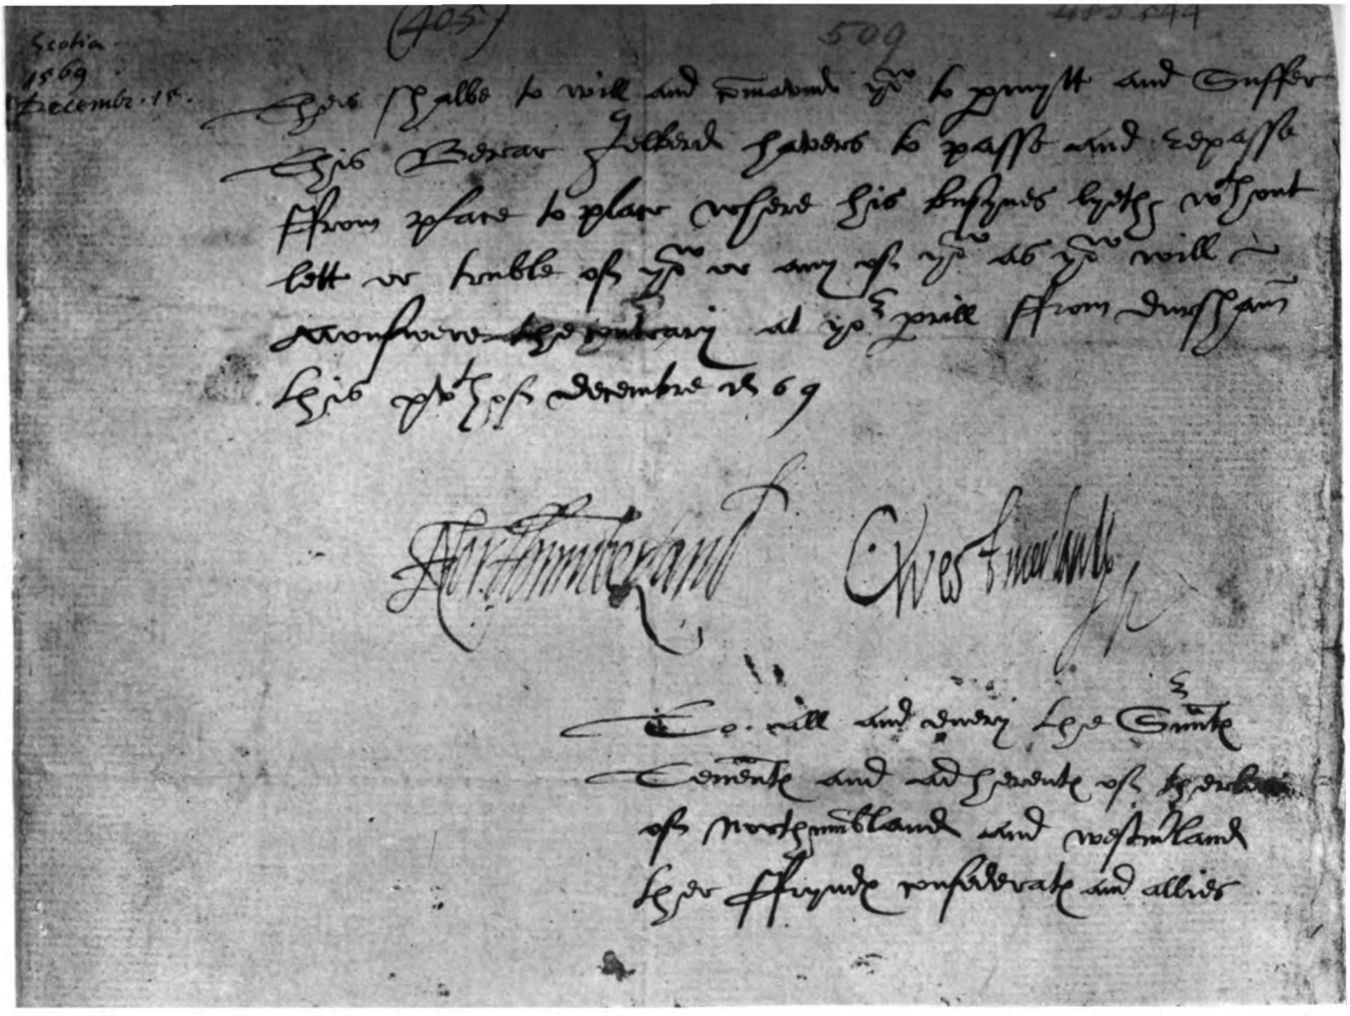 (405)
509
Scotia
1569
Decembr. 15.
Theis shalbe to will and comaunde you to pmytt and Suffer
This Berear to passe and repasse
ffrom place to place where his busynes lyeth wthout
lett or truble of you or any of you as you will
aunswere the contrary at yor prill ffrom Dursham
this xvth of decembre 69
Northumberland
C Westmerland
To all and every the Sruntes
Tenentes and adherentes of therles
of Northumbland and westmland
ther ffryndes confederates and allies